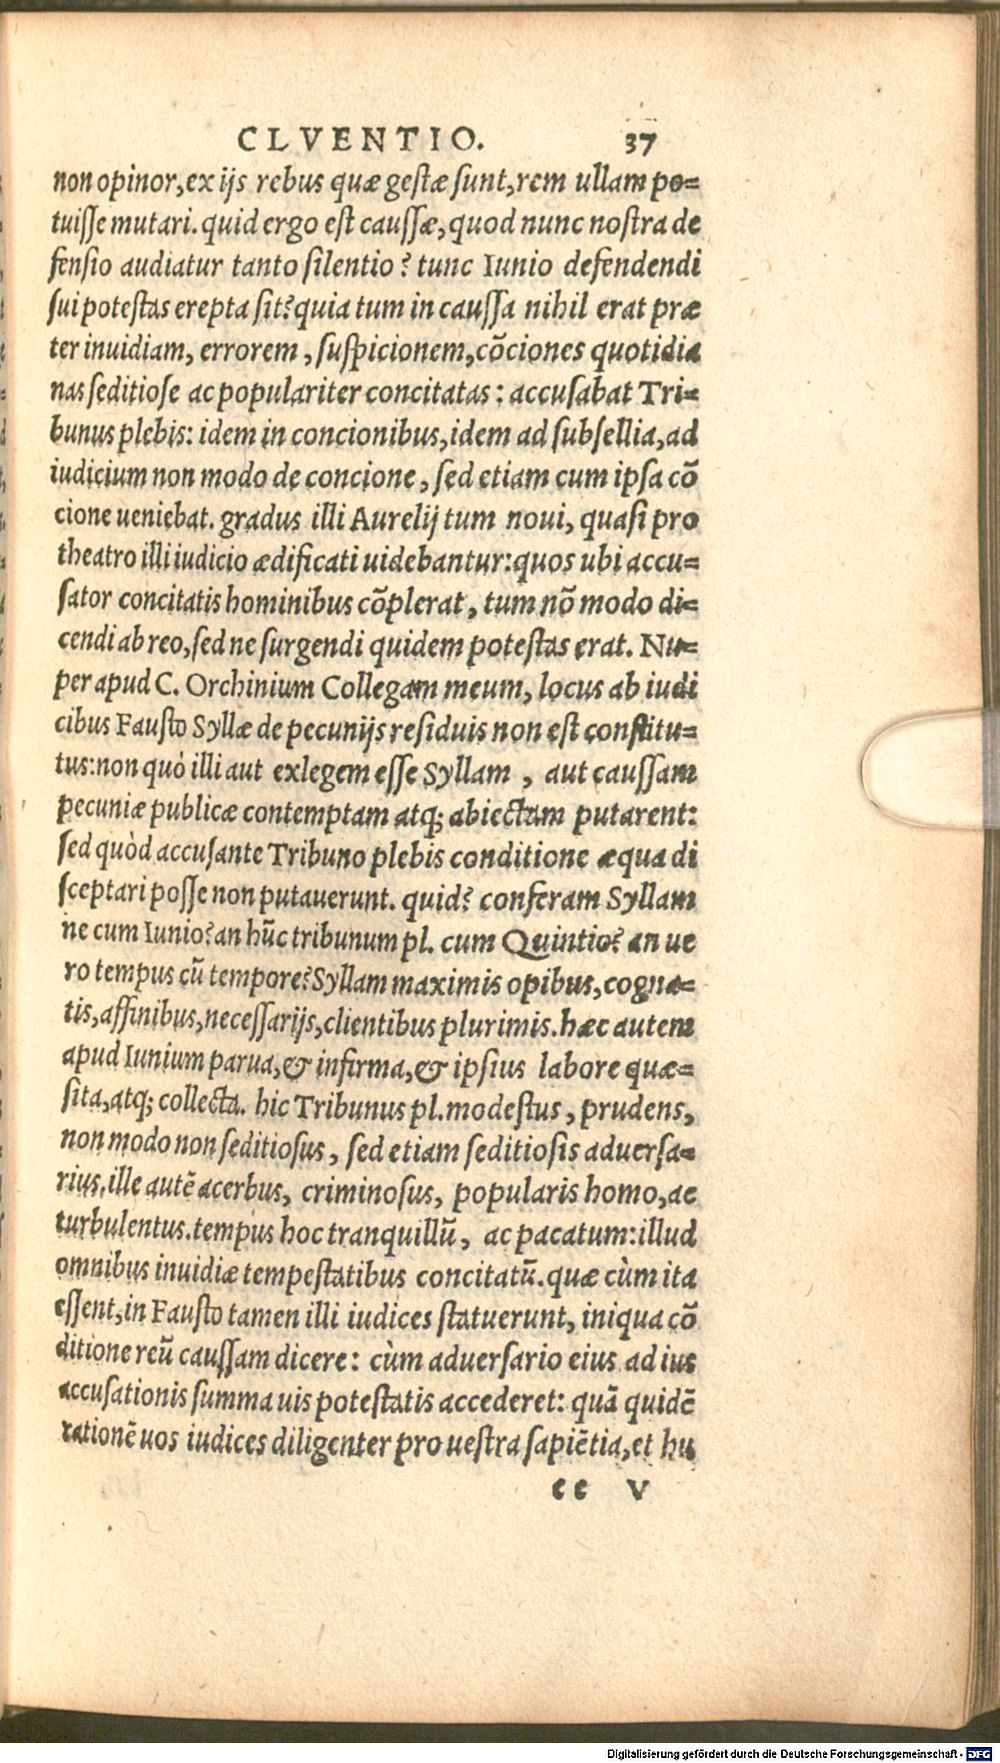 CLVENTIO. 37
non opinor, ex ijs rebus quæ gestæ sunt, rem ullam po=
tuisse mutari. quid ergo est caussæ, quod nunc nostra de
fensio audiatur tanto silentio? tunc Iunio defendendi
sui potestas erepta sit? quia tum in caussa nihil erat præ
ter inuidiam, errorem, suspicionem, cõciones quotidia
nas seditiose ac populariter concitatas: accusabat Tri=
bunus plebis: idem in concionibus, idem ad subsellia, ad
iudicium non modo de concione, sed etiam cum ipsa cõ
cione ueniebat. gradus illi Aurelij tum noui, quasi pro
theatro illi iudicio ædificati uidebantur: quos ubi accu=
sator concitatis hominibus cõplerat, tum nõ modo di=
cendi ab reo, sed ne surgendi quidem potestas erat. Nu=
per apud C. Orchinium Collegam meum, locus ab iudi
cibus Fausto Syllæ de pecunijs residuis non est constitu=
tus: non quò illi aut exlegem esse Syllam, aut caussam
pecuniæ publicæ contemptam atq; abiectam putarent:
sed quòd accusante Tribuno plebis conditione æqua di
sceptari posse non putauerunt. quid? conferam Syllam
ne cum Iunio? an hũc tribunum pl. cum Quintio? an ue
ro tempus cũ tempore? Syllam maximis opibus, cogna=
tis, affinibus, necessarijs, clientibus plurimis. hæc autem
apud Iunium parua, & infirma, & ipsius labore quæ=
sita, atq; collecta. hic Tribunus pl. modestus, prudens,
non modo non seditiosus, sed etiam seditiosis aduersa=
rius, ille autẽ acerbus, criminosus, popularis homo, ac
turbulentus. tempus hoc tranquillũ, ac pacatum: illud
omnibus inuidiæ tempestatibus concitatũ. quæ cùm ita
essent, in Fausto tamen illi iudices statuerunt, iniqua cõ
ditione reũ caussam dicere: cùm aduersario eius ad ius
accusationis summa uis potestatis accederet: quã quidẽ
rationẽ uos iudices diligenter pro uestra sapiẽtia, et hu
cc v
Digitalisierung gefördert durch die Deutsche Forschungsgemeinschaft - DFG